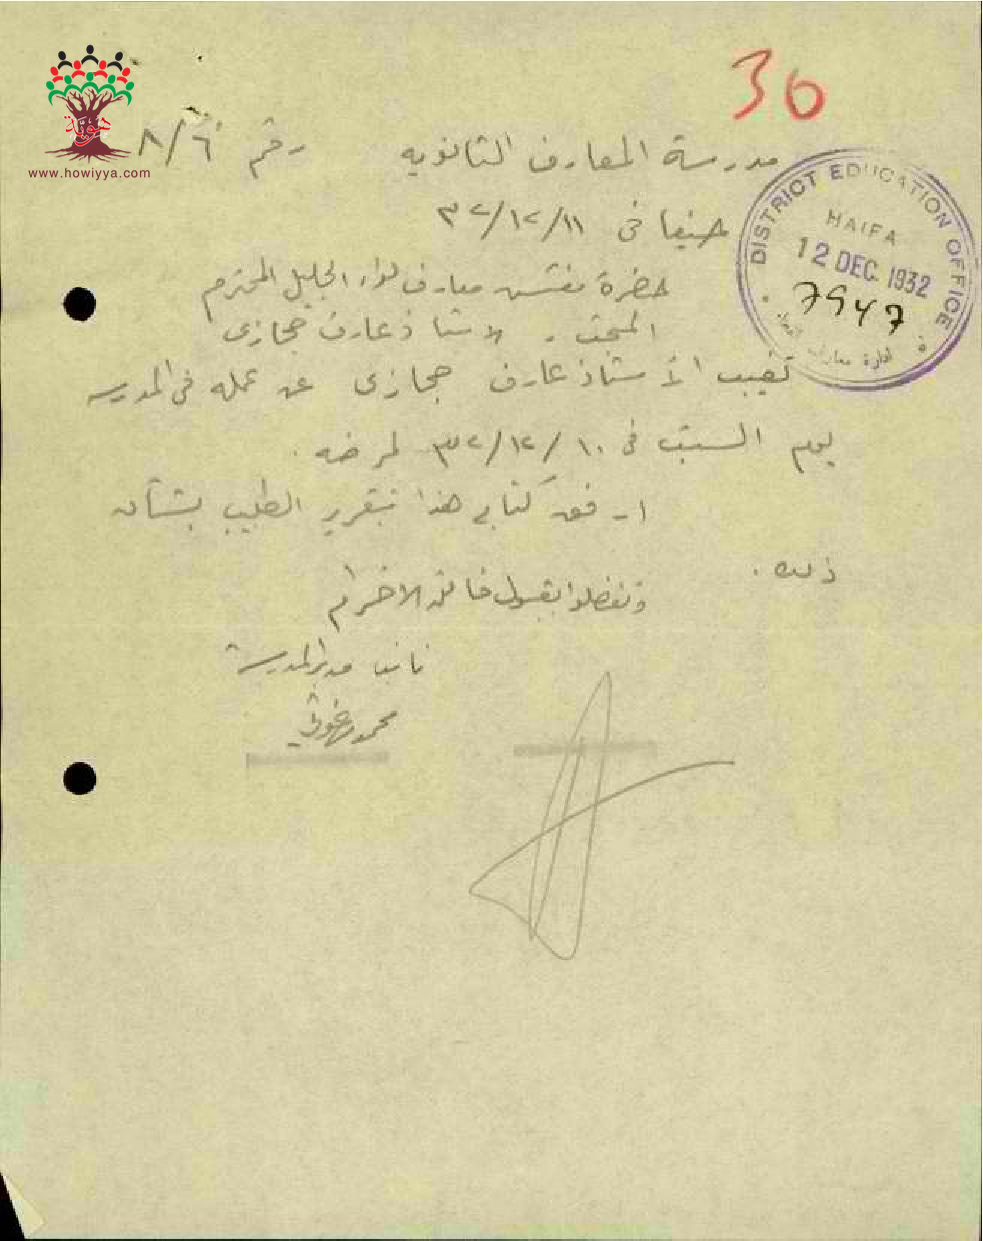 36
هوية
www.howiyya.com
مدرسة المعارف الثانويه رقم ٨/٦
DISTRICT EDUCATION OFFICE
HAIFA
12 DEC. 1932
7947
ادارة معارف
حيفا فى ١١/١٢/٣٢
حضرة مفتش معارف لواء الجليل المحترم
المبحث . الاستاذ عارف حجازى
تغيب الأستاذ عارف حجازى عن عمله فى المدرسه
يوم السبت فى ١٠/١٢/٣٢ لمرضه .
ارفق كتابي هذا بتقرير الطبيب بشأن
ذلك .
وتفضلوا بقبول فائق الاحترام
نائب مدير المدرسة
محمد